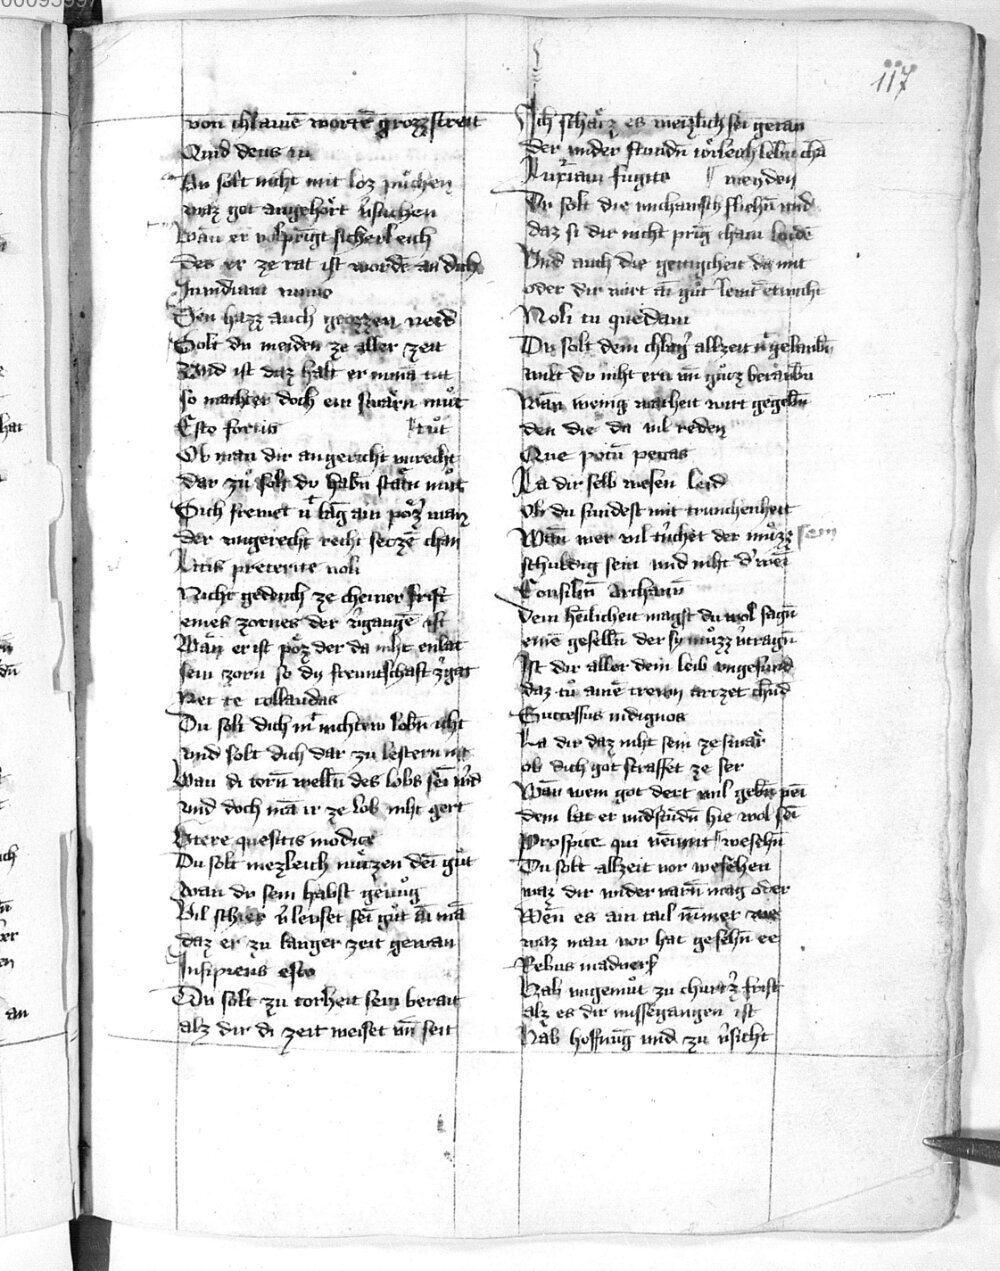 117
von chlainē wortē grozz streit
Quid deus in
Du solt niht mit loz půchen
waz got angehört v̓suchen
Wān er volpringt sicherleich
des er ze rat ist wordē an dich
Inuidiam nimio
Den hazz auch grozzen neid
Solt du meiden ze aller zeit
Vnd ist daz halt er nimā tut
so machter doch ein swārn můt
Esto fortis tůt
Ob man dir angericht vnrecht
dar zů solt dv habn stātn můt
Sich frewet
der vngerecht recht setzē chan
Litis preterite noli
Nicht gedench ze cheiner frist
eines zornes der v̓gangē ist
Wān er ist pöz der da niht enlat
sein zorn so dy freuntschaft v̓gat
Nec te collaudas
Du solt dich nichten lobn icht
vnd solt dich dar zu lestern nit
Wan di torn wellñ des lobs sein
vnd doch mā ir ze lob niht gert
Vtere quesitis modice
Du solt mezleich nützen dein gůt
wan dv sein habst genůg
Vil schier v̓leuset sei gůt ain mā
daz er zu langer zeit gewan
Insipiens esto
Du solt zu torheit sein berait
alz dir di zeit weiset vñ seit
Ich schätz es weizlich sei getan
der vnder stundn
Luxuriam fugito meyden
Du solt die vnchawsch fliehn vnd
daz si dir nicht pring chain laide
Vnd auch die geitigcheit da mit
oder dir wirt an gůt lewt entwicht
Noli tu quedam
Du solt dem chlag allzeit
wilt dv niht ern vñ gůtz beraubn
Wān wenig warheit wirt gegebn
den die da vil reden
Que potū peccas
La dir selb wesen leid
ob du sundest mit trunchenheit
Wān wer vil tůchet der můzz sein
schuldig sein vnd niht d̓ wein
Consiliū archanū
Dein heilicheit magst du wol sagñ
einē geselln der sy můzz v̓tragñ
Ist dir aller dein leib vngesund
daz tů ainē trewn artzet chūd
Successus indignos
La dir daz niht sein ze swär
ob dich got straffet ze ser
Wān wem got dort wil gebn pein
dem lat er vnd sündn hie wol sein
Prospice qui veniunt wesehn
Du solt allzeit vor wesehen
waz dir wider varn mag oder
Wēn es ain tail minner we
waz man vor hat gesehn ee
Rebus inaduers̓
Hab vngemůt zu churtz̓ frist
alz es dir missegangen ist
Hab hoffnūg vnd zu v̓sicht